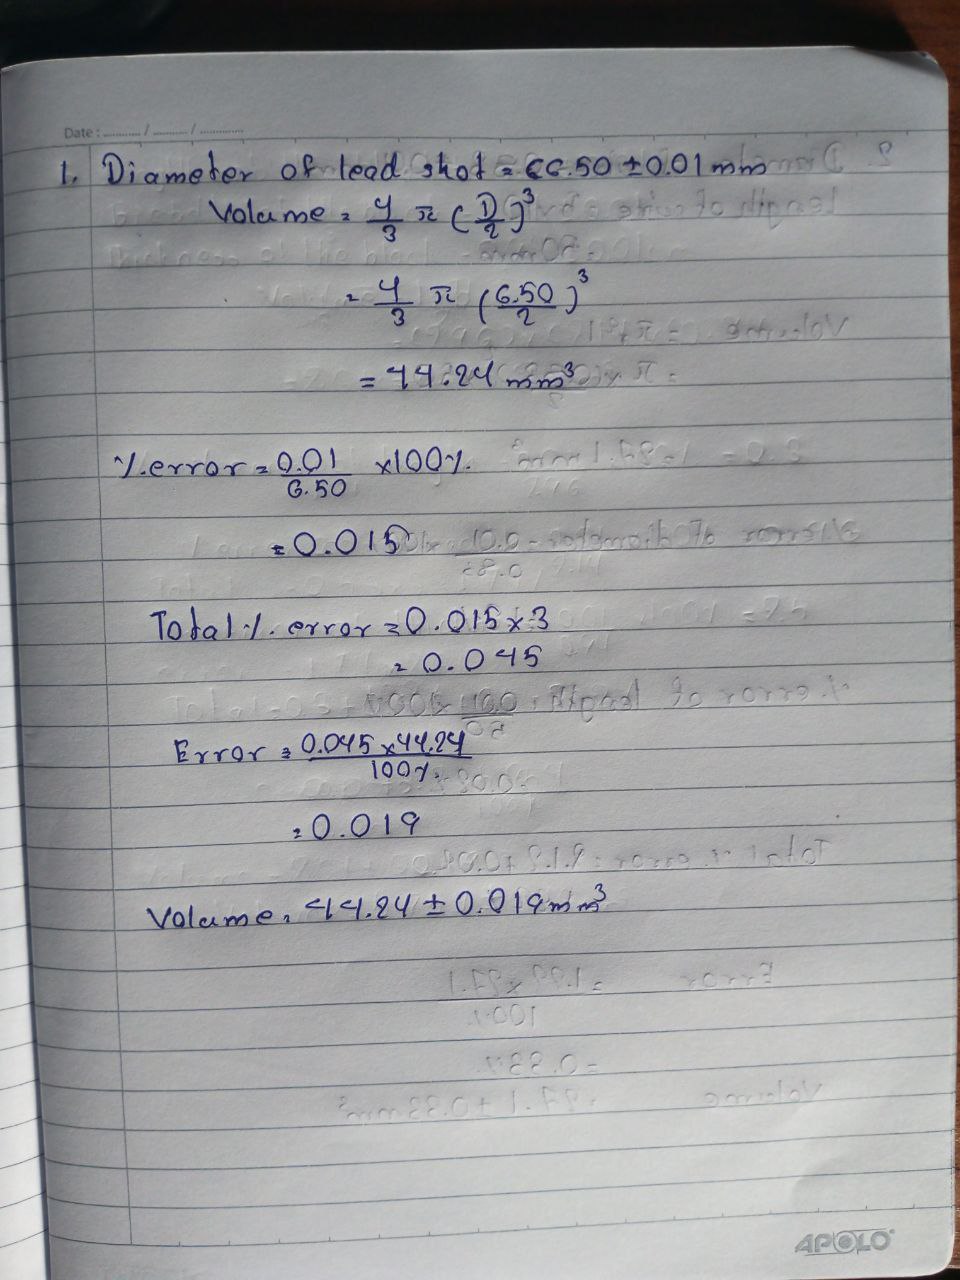 Date : ......... / ......... / ............
1. Diameter of lead shot = 66.50 ± 0.01 mm
Volume = 4/3 π (D/2)³
= 4/3 π (6.50/2)³
= 44.24 mm³
%.error = 0.01/6.50 ×100%.
= 0.015
Total %. error = 0.015 × 3
= 0.045
Error = 0.045 × 44.24/100%.
= 0.019
Volume = 44.24 ± 0.019 mm³
APOLO